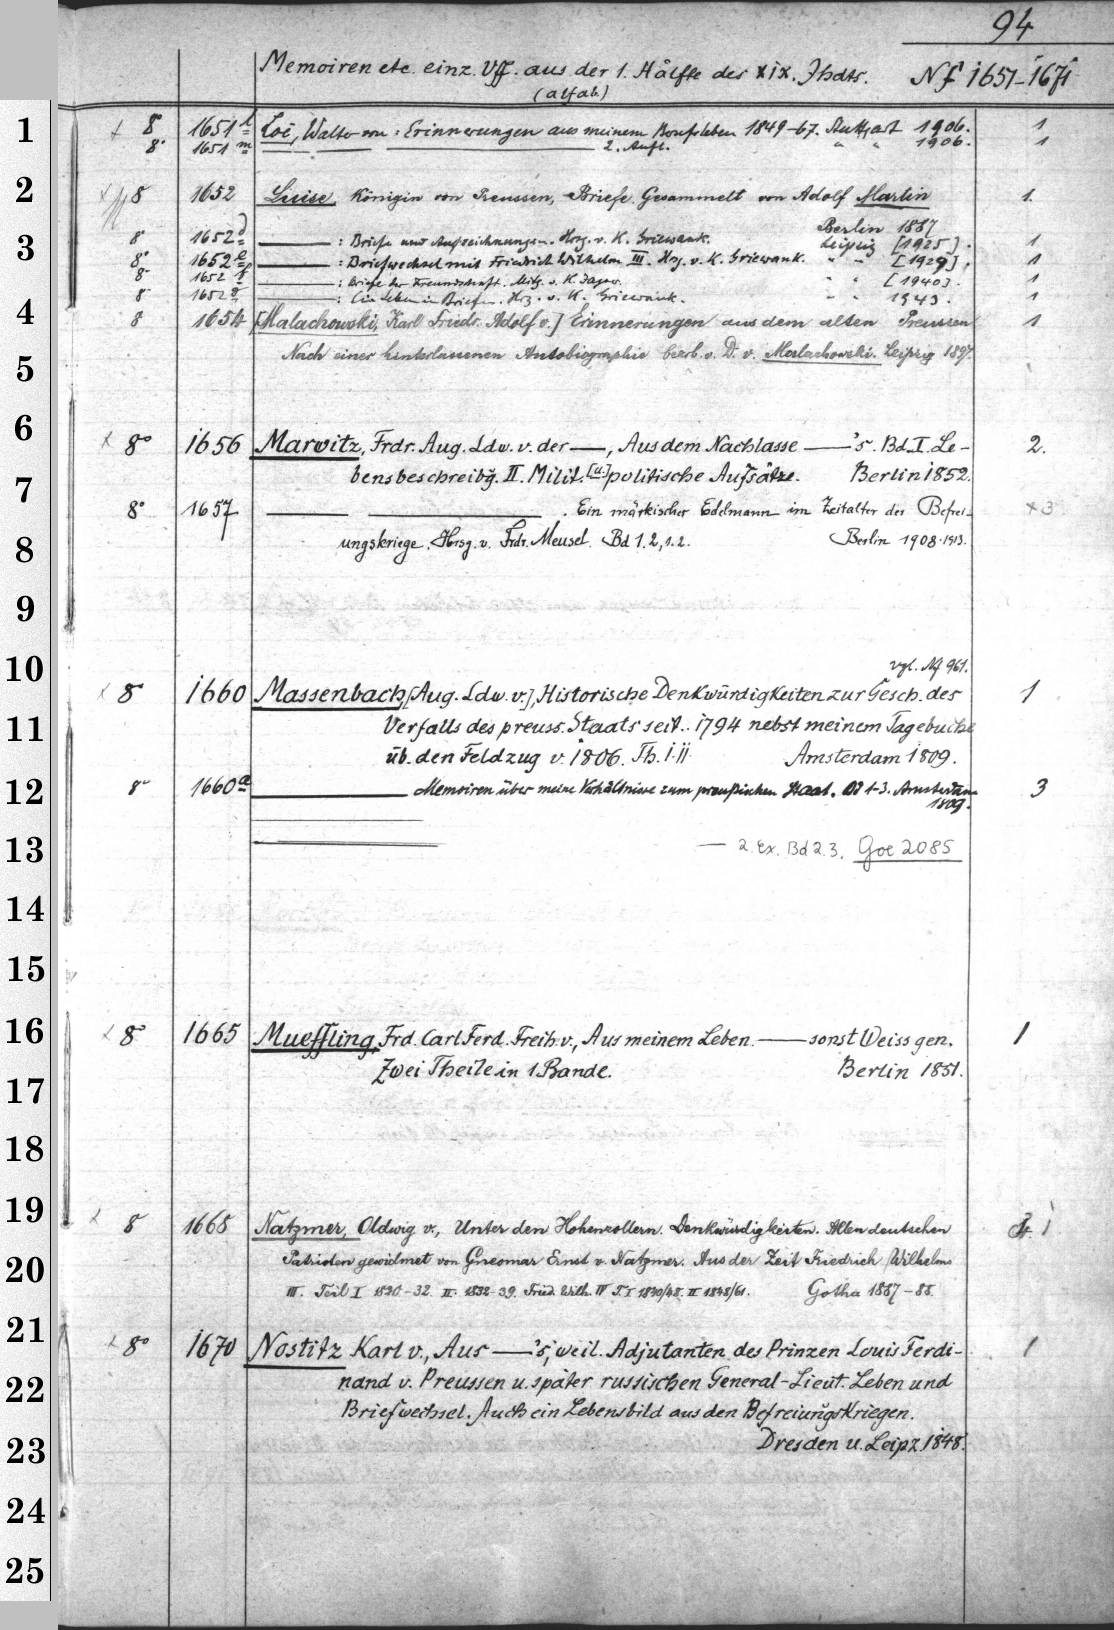 94
Memoiren etc. einz. Vff. aus der 1. Hälfte des XIX. Jhdts. Nf 1651-1671
(alfab.)
1 + 8° 1651 l Loë, Walter von: Erinnerungen aus meinem Berufsleben 1849-67. Stuttgart 1906. 1
8° 1651 m — — — 2. Aufl. " " 1906. 1
2 8 1652 Luise, Königin von Preussen, Briefe. Gesammelt von Adolf Martin 1.
Berlin 1887
3 8° 1652 d — : Briefe und Aufzeichnungen. Hrsg. v. K. Griewank. Leipzig [1925]. 1
8° 1652 e — : Briefwechsel mit Friedrich Wilhelm III. Hrg. v. K. Griewank. " " [1929]. 1
8° 1652 f — : Briefe der Freundschaft. v. K. " " [1940]. 1
8° 1652 g — : Ein Leben in Briefen. Hrg. v. K. Griewank. " " 1943. 1
4 8 1654 [Malachowski, Karl Friedr. Adolf v.] Erinnerungen aus dem alten Preussen 1
5 Nach einer hinterlassenen Autobiographie bearb. v. D. v. Malachowski. Leipzig 1897.
6 x 8° 1656 Marwitz, Frdr. Aug. Ldw. v. der —, Aus dem Nachlasse —'s. Bd. I. Le- 2.
7 bensbeschreibg. II. Milit. [u.] politische Aufsätze. Berlin 1852.
8° 1657 — — . Ein märkischer Edelmann im Zeitalter der Befrei- x 3
8 ungskriege. Hrsg. v. Frdr. Meusel. Bd 1. 2,1.2. Berlin 1908-1913.
9
10 vgl. Nf 961.
x 8° 1660 Massenbach, [Aug. Ldw. v.], Historische Denkwürdigkeiten zur Gesch. des 1
11 Verfalls des preuss. Staats seit.. 1794 nebst meinem Tagebuche
üb. den Feldzug v. 1806. Th. I.II. Amsterdam 1809.
12 8° 1660 a — Memoiren über meine Verhältnisse zum preußischen Staat. Bd 1-3. Amsterdam 3
1809.
13 — 2. Ex. Bd 2.3. Goe 2085
14
15
16 x 8° 1665 Mueffling, Frd. Carl Ferd. Freih. v., Aus meinem Leben. — sonst Weiss gen. 1
17 Zwei Theile in 1 Bande. Berlin 1851.
18
19 x 8° 1668 Natzmer, Oldwig v., Unter den Hohenzollern. Denkwürdigkeiten. Allen deutschen 1
20 Patrioten gewidmet von Gneomar Ernst v. Natzmer. Aus der Zeit Friedrich Wilhelms
III. Teil I 1820-32. II. 1832-39. Fried. Wilh. IV T. I 1840/48. II 1848/61. Gotha 1887-88.
21 x 8° 1670 Nostitz Karl v., Aus —'s, weil. Adjutanten des Prinzen Louis Ferdi- 1
22 nand v. Preussen u. später russischen General-Lieut. Leben und
Briefwechsel. Auch ein Lebensbild aus den Befreiungskriegen.
23 Dresden u. Leipz. 1848.
24
25